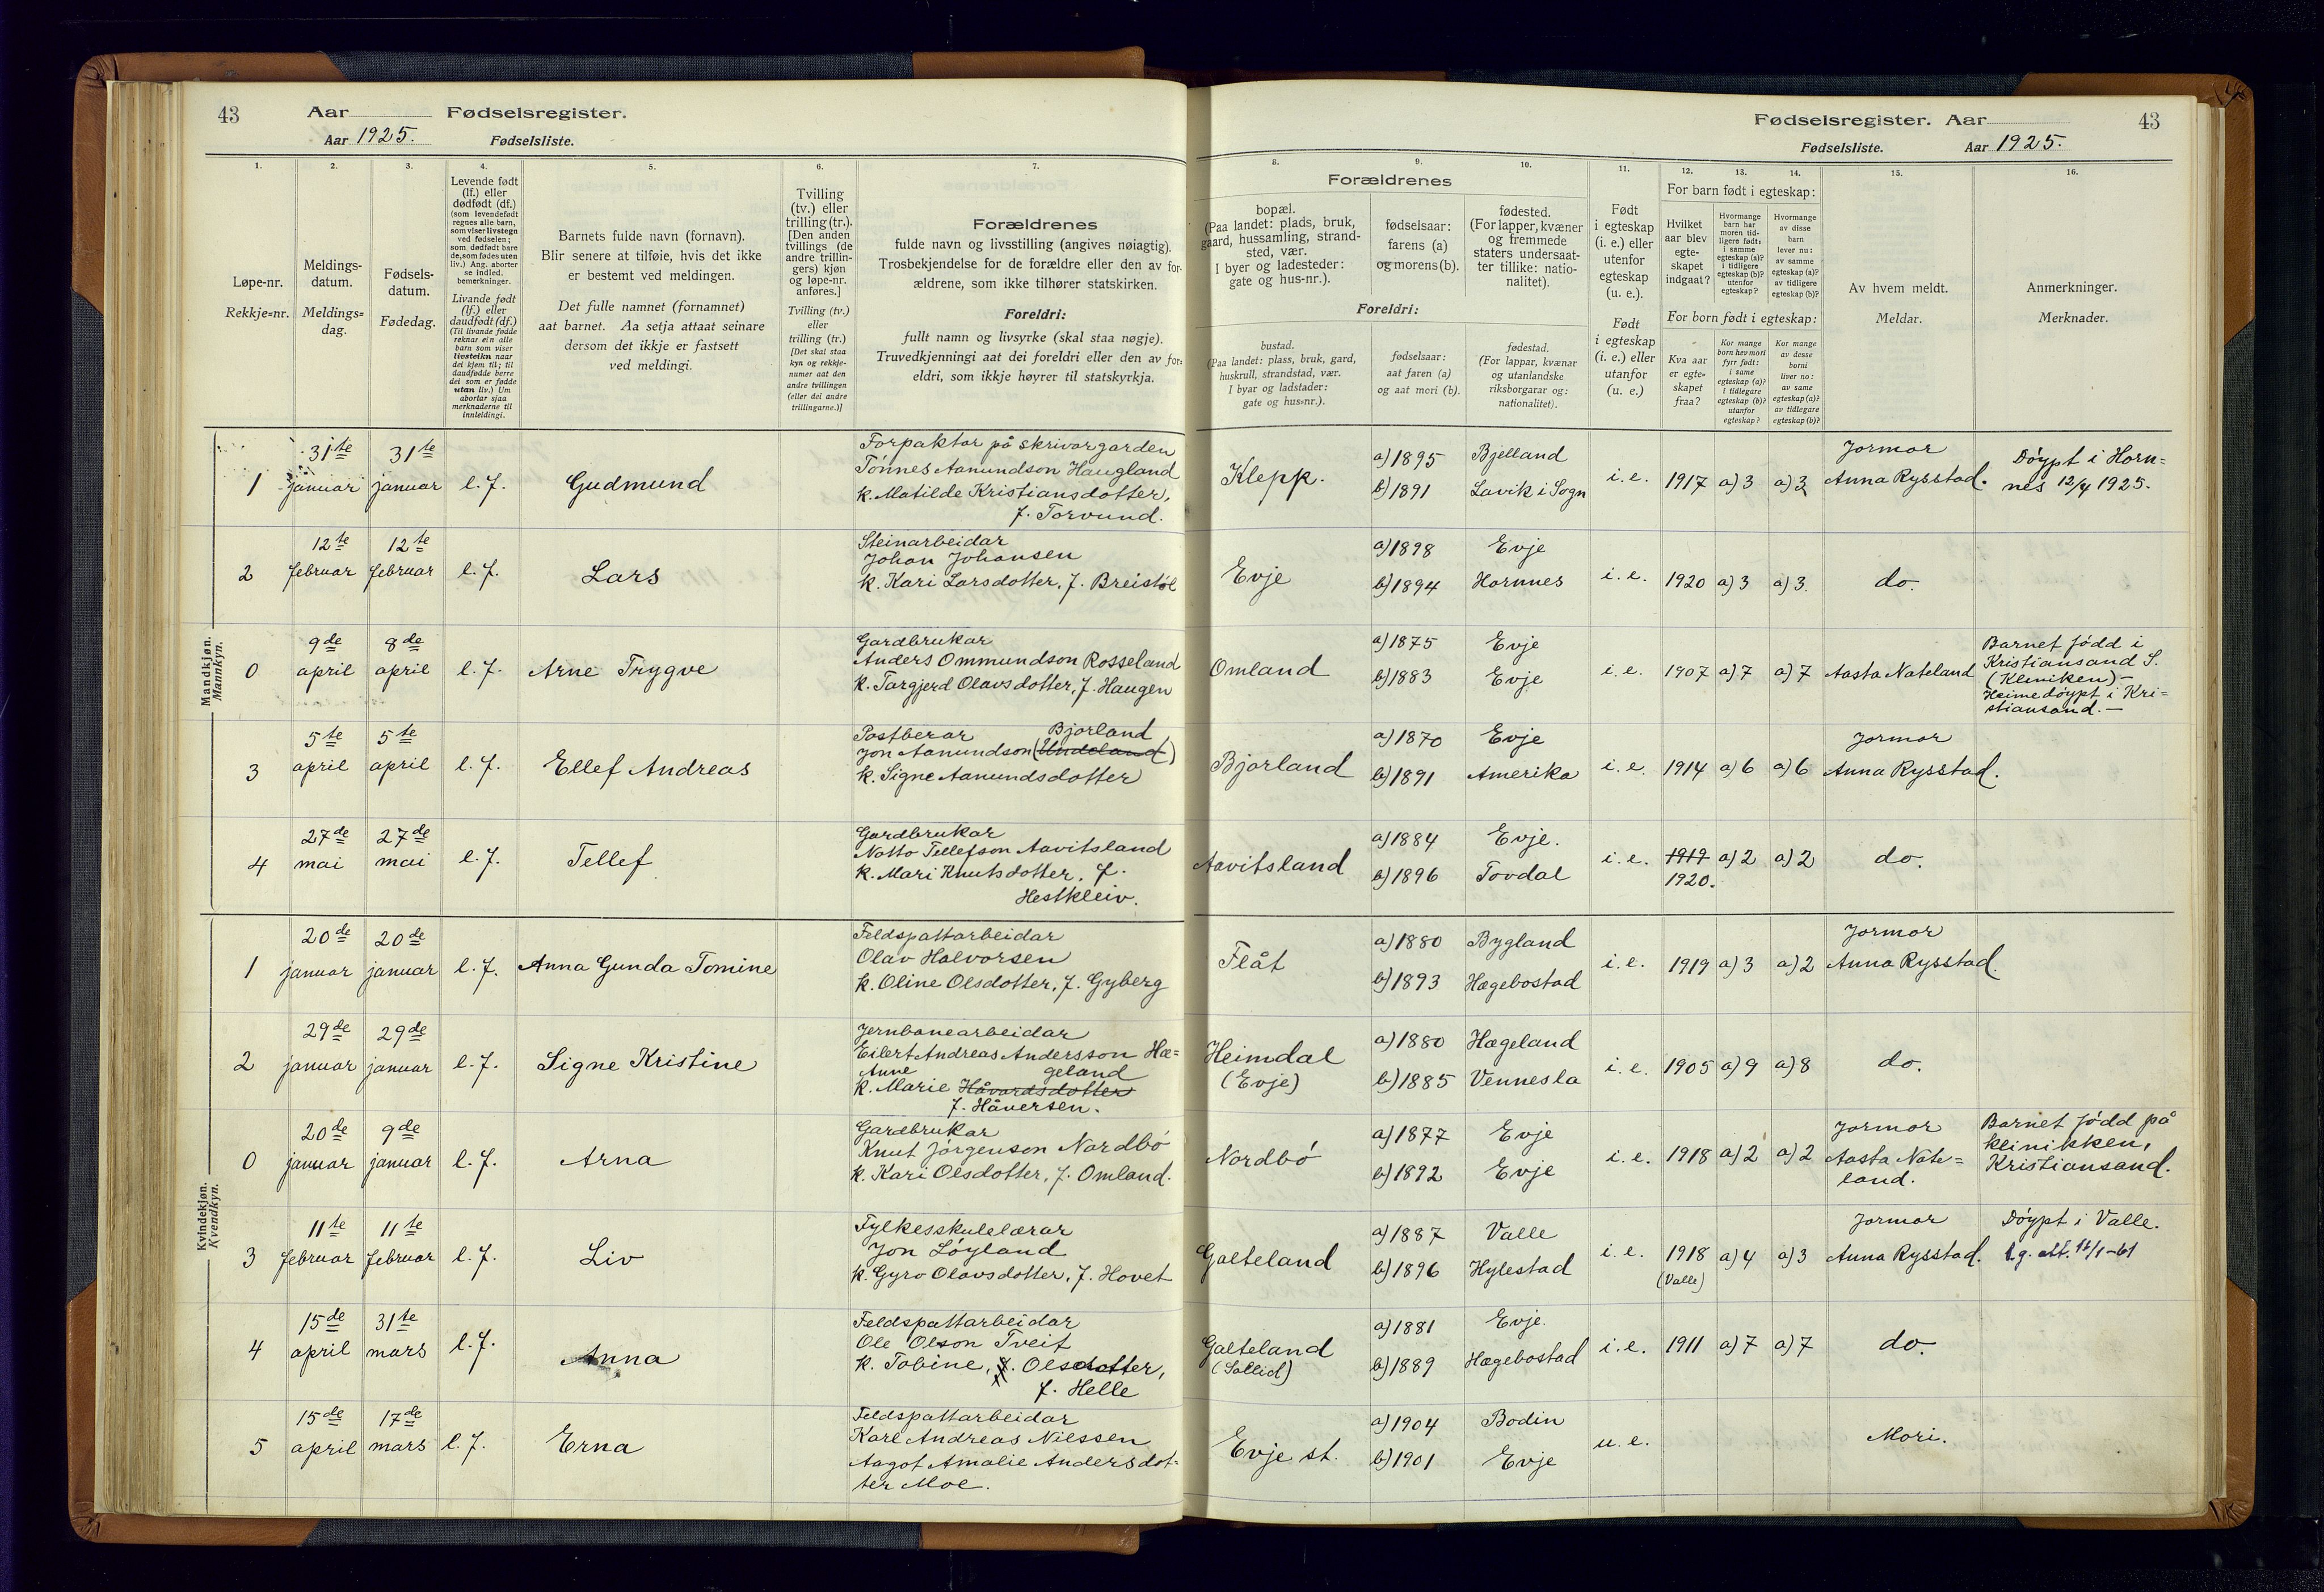 43
Aar
Fødselsregister.
Aar 1925.
Fødselsliste.
1.
2.
3.
4.
5.
6.
7.
Løpe-nr.
Rekkje=nr.
Meldings-
datum.
Meldings=
dag.
Fødsels-
datum.
Fødedag.
Levende født
(lf.) eller
dødfødt (df.)
(som levendefødt
regnes alle barn,
som viser livstegn
ved fødselen;
som dødfødt bare
de, som fødes uten
liv.) Ang. aborter
se indled.
bemerkninger.
Livande født
(lf.) eller
daudfødt (df.)
(Til livande fødde
reknar ein alle
barn som viser
livsteikn naar
dei kjem til; til
daudfødde berre
dei som er fødde
utan liv.) Um
abortar sjaa
merknaderne til
innleidingi.
Barnets fulde navn (fornavn).
Blir senere at tilføie, hvis det ikke
er bestemt ved meldingen.
Det fulle namnet (fornamnet)
aat barnet. Aa setja attaat seinare
dersom det ikkje er fastsett
ved meldingi.
Tvilling
(tv.) eller
trilling (tr.).
[Den anden
tvillings (de
andre trillin-
gers) kjøn
og løpe-nr.
anføres.]
Tvilling (tv.)
eller
trilling (tr.)
[Det skal staa
kyn og rekkje-
numer aat den
andre tvillingen
(eller dei andre
trillingarne.)]
Forældrenes
fulde navn og livsstilling (angives nøiagtig).
Trosbekjendelse for de forældre eller den av for-
ældrene, som ikke tilhører statskirken.
Foreldri:
fullt namn og livsyrke (skal staa nøgje).
Truvedkjenningi aat dei foreldri eller den av for=
eldri, som ikkje høyrer til statskyrkja.
Mandkjøn.
Mannkyn.
1
31te januar
31te januar
l.f.
Gudmund
Forpaktar på skrivargarden
Tønnes Aanundson Haugland
k. Matilde Kristiansdotter,
f. Torvund.
2
12te februar
12te februar
l.f.
Lars
Steinarbeidar
Johan Johansen
k. Kari Larsdotter, f. Breistøl
0
9de april
8de april
l.f.
Arne Trygve
Gardbrukar
Anders Ommundson Rosseland
k. Targjerd Olavsdotter, f. Haugen
3
5te april
5te april
l.f.
Ellef Andreas
Postberar Bjorland
Jon Aanundson (Undeland)
k. Signe Aanundsdotter
4
27de mai
27de mai
l.f.
Tellef
Gardbrukar
Notto Tellefson Aavitsland
k. Mari Knutsdotter, f.
Hestkleiv.
Kvindekjøn.
Kvendkyn.
1
20de januar
20de januar
l.f.
Anna Gunda Tomine
Feldspattarbeidar
Olav Halvorsen
k. Oline Olsdotter, f. Gyberg
2
29de januar
29de januar
l.f.
Signe Kristine
Jernbanearbeidar
Eilert Andreas Andersson Hæ=
Anne geland
k. Marie Håvardsdotter
f. Håversen.
0
20de januar
9de januar
l.f.
Arna
Gardbrukar
Knut Jørgenson Nordbø
k. Kari Olsdotter, f. Omland.
3
11te februar
11te februar
l.f.
Liv
Fylkesskulelærar
Jon Løyland
k. Gyro Olavsdotter, f. Hovet
4
15de april
31te mars
l.f.
Anna
Feldspattarbeidar
Ole Olson Tveit
k. Tobine, f. Olsdotter,
f. Helle
5
15de april
17de mars
l.f.
Erna
Feldspattarbeidar
Karl Andreas Nilssen
Aagot Amalie Andersdot=
ter Moe.
Fødselsregister. Aar
43
Fødselsliste.
Aar 1925.
8.
9.
10.
11.
12.
13.
14.
15.
16.
Forældrenes
bopæl.
(Paa landet: plads, bruk,
gaard, hussamling, strand-
sted, vær.
I byer og ladesteder:
gate og hus-nr.).
fødselsaar:
farens (a)
og morens (b).
fødested.
(For lapper, kvæner
og fremmede
staters undersaat-
ter tillike: natio-
nalitet).
Foreldri:
bustad.
(Paa landet: plass, bruk, gard,
huskrull, strandstad, vær.
I byar og ladstader:
gate og hus=nr.).
fødselsaar:
aat faren (a)
og aat mori (b).
fødestad.
(For lappar, kvænar
og utanlandske
riksborgarar og:
nationalitet).
Født
i egteskap
(i. e.) eller
utenfor
egteskap
(u. e.).
Født
i egteskap
(i. e.) eller
utanfor
egteskap
(u. e.)
For barn født i egteskap:
Hvilket
aar blev
egte-
skapet
indgaat?
Hvormange
barn har
moren tid-
ligere født:
i samme
egteskap (a)?
i tidligere
egteskap (b)?
utenfor
egteskap?
Hvormange
av disse
barn
lever nu:
av samme
egteskap (a)?
av tidligere
egteskap (b)?
For born født i egteskap:
Kva aar
er egte=
skapet
fraa?
Kor mange
born hev mori
fyrr født:
i same
egteskap (a)?
i tidlegare
egteskap (b)?
utanfor
egteskap?
Kor mange
av desse
borni
liver no:
av same
egteskap (a)?
av tidlegare
egteskap (b)?
Av hvem meldt.
Meldar.
Anmerkninger.
Merknader.
Klepp.
a) 1895 Bjelland
b) 1891 Lavik i Sogn
i.e. 1917 a) 3 a) 3
Jormor
Anna Rysstad.
Døypt i Horn=
nes 12/4 1925.
Evje
a) 1898 Evje
b) 1894 Hornnes
i.e. 1920 a) 3 a) 3.
do.
Omland
a) 1875 Evje
b) 1883 Evje
i.e. 1907 a) 7 a) 7
Aasta Nateland
Barnet fødd i
Kristiansand S.
(Kliniken) –
Heimedøypt i Kri=
stiansand. –
Bjorland
a) 1870 Evje
b) 1891 Amerika
i.e. 1914 a) 6 a) 6
Jormor
Anna Rysstad.
Aavitsland
a) 1884 Evje.
b) 1896 Tovdal
i.e. 1919 a) 2 a) 2
1920.
do.
Flåt
a) 1880 Bygland
b) 1893 Hægebostad
i.e. 1919 a) 3 a) 2
Jormor
Anna Rysstad.
Heimdal
(Evje)
a) 1880 Hægeland
b) 1885 Vennesla
i.e. 1905 a) 9 a) 8
do.
Nordbø
a) 1877 Evje
b) 1892 Evje
i.e. 1918 a) 2 a) 2
Jormor
Aasta Nate=
land.
Barnet fødd på
klinikken,
Kristiansand.
Galteland
a) 1887 Valle
b) 1896 Hylestad
i.e. 1918 a) 4 a) 3
(Valle)
Jormor
Anna Rysstad.
Døypt i Valle.
Galteland
(Sollid)
a) 1881 Evje.
b) 1889 Hægebostad
i.e. 1911 a) 7 a) 7
do.
Evje st.
a) 1904 Bodin
b) 1901 Evje
u.e.
Mori.